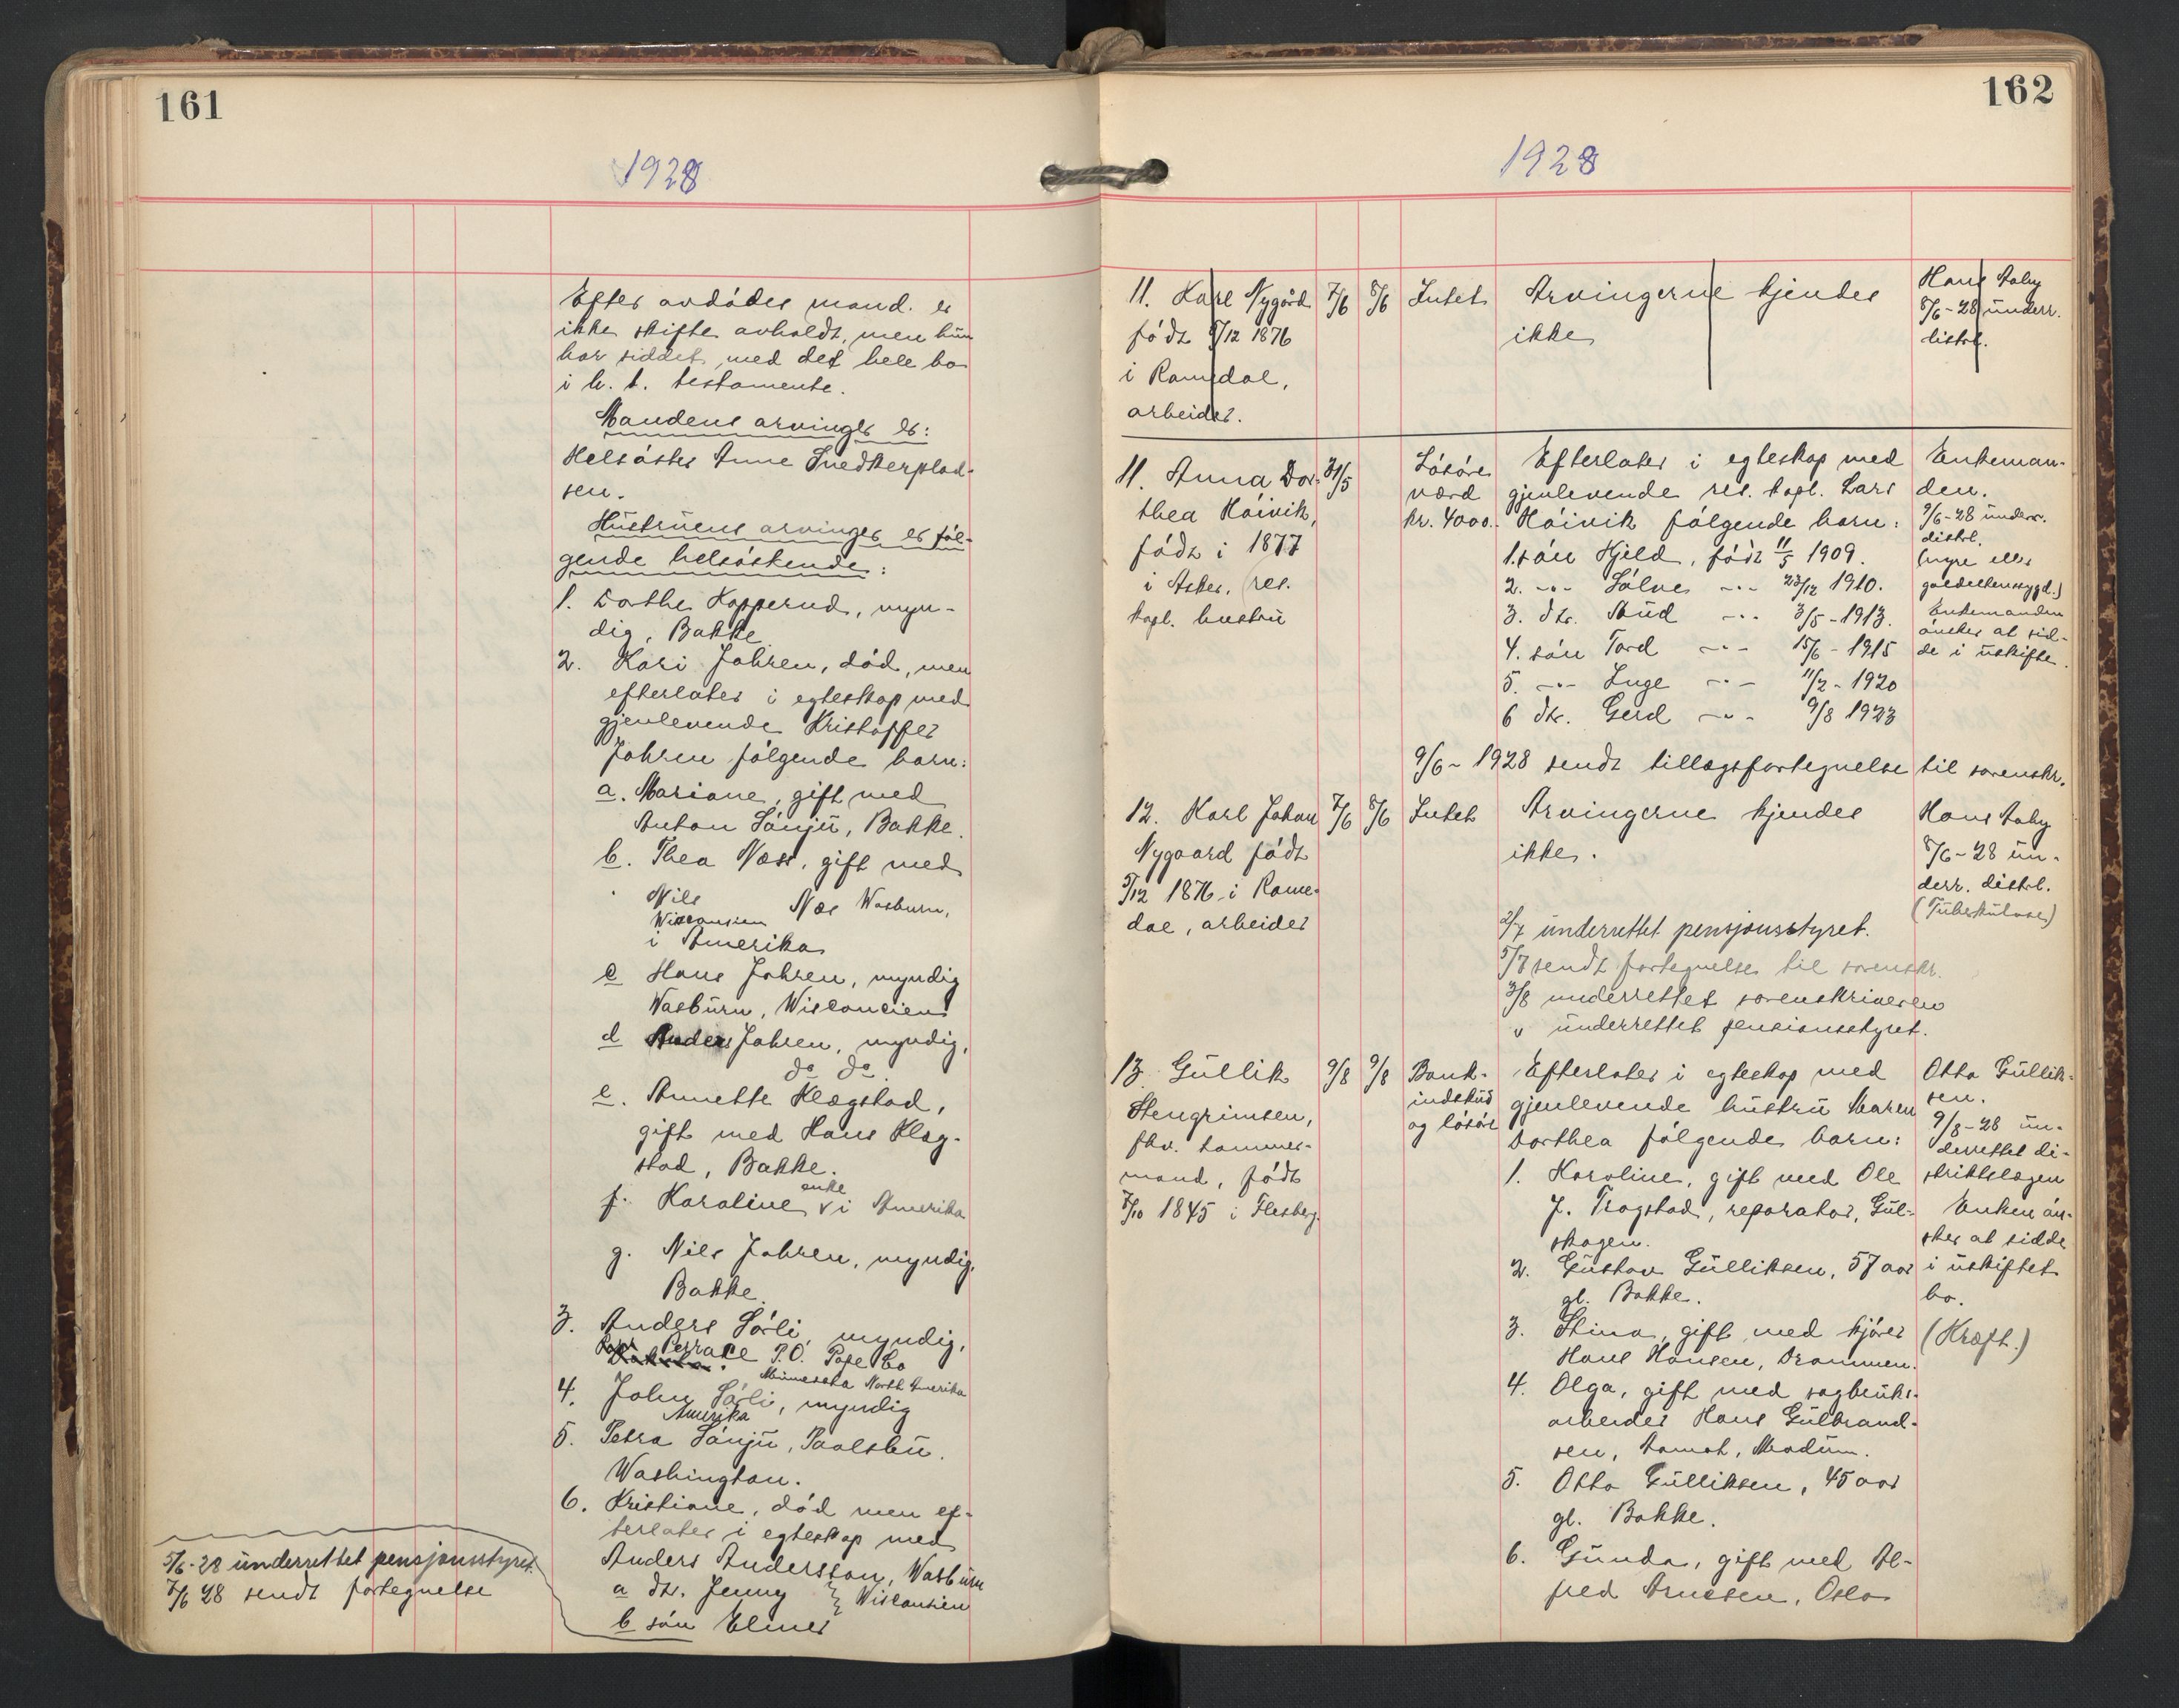 161
1928
Efter avdødes mand er
ikke skifte avholdt, men hun
har siddet med det hele bo
i h. t. testamente.
Mandens arvinger er:
Helsøster Anne Snedkerplad-
sen.
Hustruens arvinger er føl-
gende helsøskende:
1. Dorthe Kopperud, myn-
dig, Bakke
2. Kari Jahren, død, men
efterlater i egteskap med
gjenlevende Kristoffer
Jahren følgende barn:
a. Mariane, gift med
Anton Sønju, Bakke.
b. Thea Næss, gift med
Nils Næs Wasburn,
Wisconsien
i Amerika
c Hans Jahren, myndig
Wasburn, Wisconsien
d Anders Jahren, myndig,
do do.
e. Annette Klægstad,
gift med Hans Klæg-
stad, Bakke.
f. Karoline enke i Amerika
g. Nils Jahren, myndig,
Bakke.
3. Anders Sørli, myndig,
Terrace P.O. Pope Co
Minnesota North Amerika
4. John Sørli, myndig
Amerika
5. Petra Sønju, Paalsbu.
Washington.
6. Kristiane, død men ef-
terlater i egteskap med
Anders Andersson, Wasburn
a dtr. Jenny } Wisconsien
b søn Elmer
5/6-28 underrettet pensjonsstyret.
7/6 28 sendt fortegnelse
162
1928
11. Karl Nygård 7/6 8/6 Intet Arvingerne kjendes Hans Aaby
født 5/12 1876 ikke 8/6-28 underr.
i Ramsdal, distrl.
arbeider.
11. Anna Dor- 31/5 Løsøre Efterlater i egteskap med Enkeman-
thea Høivik, værd gjenlevende res. kapl. Lars den.
født i 1877 kr. 4000. Høivik følgende barn: 9/6-28 underr.
i Asker, res. distrl.
kapl. hustru
1. søn Kjeld, født 11/5 1909. (nyre eller
2. -"- Sølve -"- 23/12 1910. galdestensygd.)
3. dtr. Aud -"- 3/5-1913. Enkemanden
4. søn Tord -"- 15/6-1915 ønsker at sid-
de i uskifte.
5. -"- Inge -"- 11/2-1920
6 dtr. Gerd -"- 9/8 1923
9/6-1928 sendt tillægsfortegnelse til sorenskr.
12. Karl Johan 7/6 8/6 Intet Arvingerne kjendes Hans Aaby
Nygaard født ikke. 8/6-28 un-
5/12 1876 i Rams- derr. distrl.
dal, arbeider (Tuberkulose)
2/7 underrettet pensjonsstyret.
5/7 sendt fortegnelse til sorenskr.
3/8 underrettet sorenskriveren
" underrettet pensionsstyret.
13. Gullik 9/8 9/8 Bank- Efterlater i egteskap med Otto Gullik-
Stengrimsen, indskud gjenlevende hustru Maren sen.
fhv. tømmer- og løsøre Dorthea følgende barn: 9/8-28 un-
mand, født derrettet di-
7/10 1845 i Flesberg.
1. Karoline, gift med Ole striktslægen
J. Trogstad, reparatør, Gul- Enken øn-
skogen. sker at sidde
2. Gustav Gulliksen, 57 aar i uskiftet
gl. Bakke. bo.
3. Stina, gift med kjører (Kræft.)
Hans Hansen, Drammen.
4. Olga, gift med sagbruks-
arbeider Hans Gulbrand-
sen, Aamot, Modum.
5. Otto Gulliksen, 45 aar
gl. Bakke.
6. Gunda, gift med Al-
fred Arnesen, Oslo